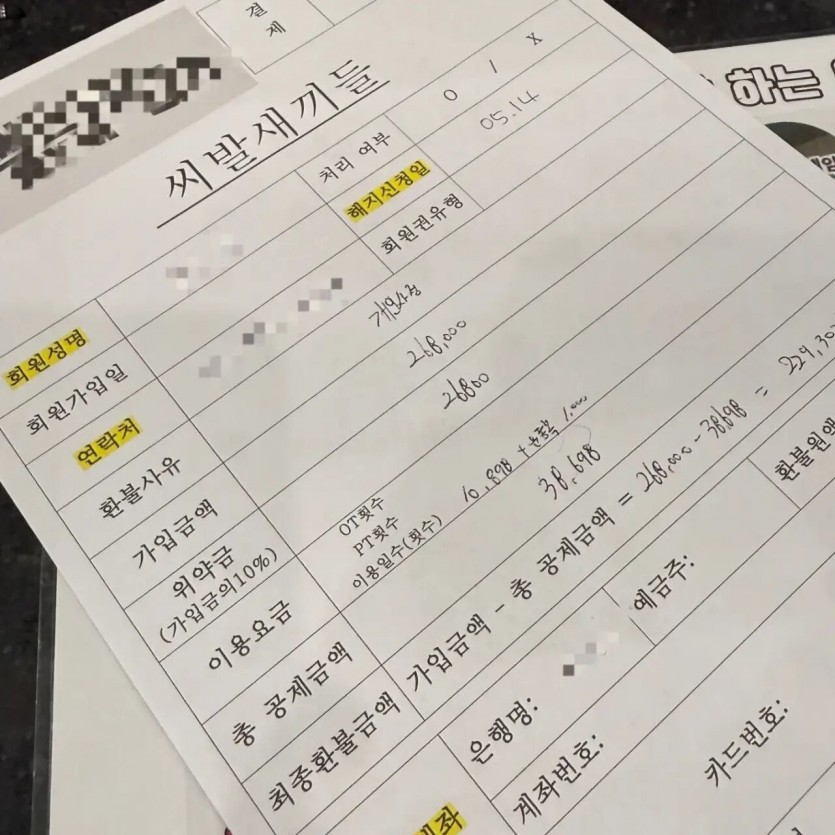 결
제
하는
씨발새끼들
처리 여부
O / X
해지신청일
05.14
회원권유형
회원성명
회원가입일
연락처
환불사유
개인사정
가입금액
268,000
위약금
(가입금의10%)
26800
이용요금
OT횟수
PT횟수
이용일수(횟수)
10,898 + 운동복 1,000
총 공제금액
38,698
최종환불금액
가입금액 - 총 공제금액 = 268,000 - 38,698 = 229,30
환불원액
은행명:
예금주:
계좌번호:
카드번호:
계좌